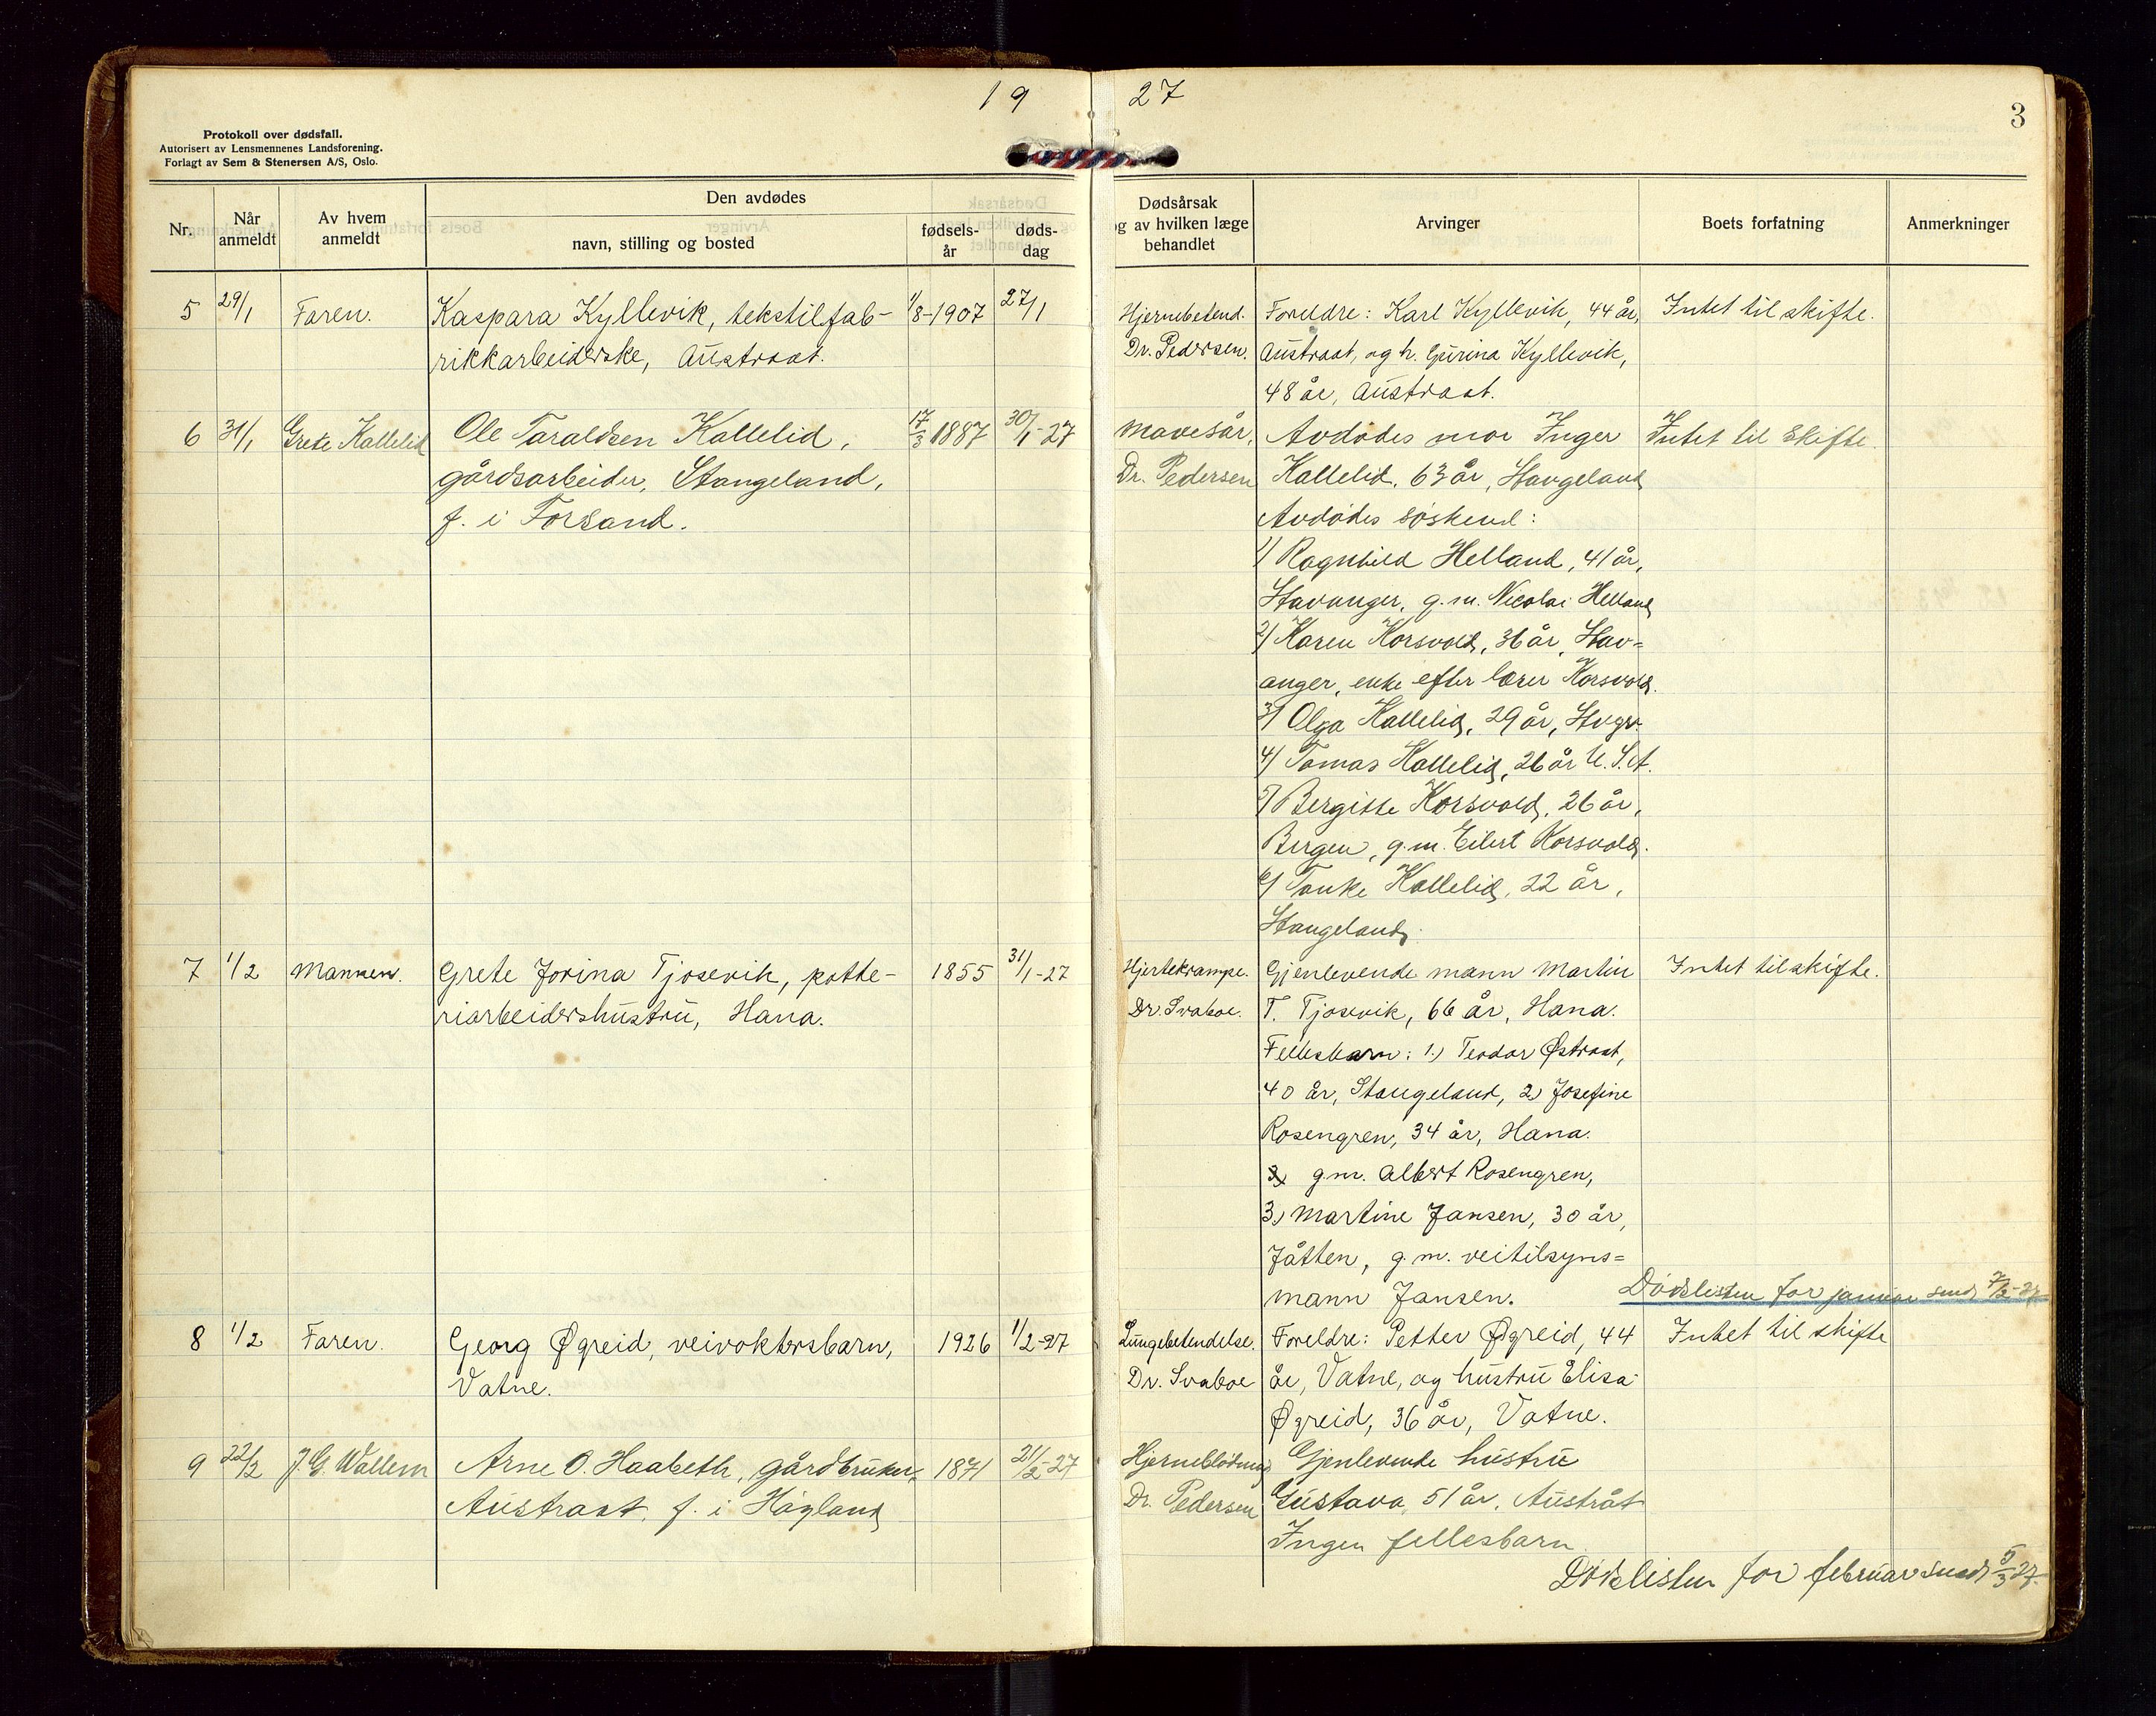 19 27
3
Protokoll over dødsfall.
Autorisert av Lensmennenes Landsforening.
Forlagt av Sem & Stenersen A/S, Oslo.
Nr.
Når anmeldt
Av hvem anmeldt
Den avdødes
navn, stilling og bosted
fødsels-år
døds-dag
Dødsårsak
og av hvilken læge
behandlet
Arvinger
Boets forfatning
Anmerkninger
5 29/1 Faren. Kaspara Kyllevik, tekstilfab- 1/8-1907 27/1
rikkarbeiderske, Austraat.
Hjernebetend.
Dr. Pedersen.
Foreldre: Karl Kyllevik, 44 år,
Austraat, og h. Gurina Kyllevik,
48 år, Austraat.
Intet til skifte.
6 31/1 Grete Kallelid Ole Taraldsen Kallelid, 17/3 1887 30/1-27
gårdsarbeider, Stangeland,
f. i Forsand.
Mavesår.
Dr. Pedersen
Avdødes mor Inger
Kallelid. 63 år, Stangeland
Avdødes søskend:
1/ Ragnhild Helland, 41 år,
Stavanger, g.m. Nicolai Helland
2/ Karen Korsvold, 36 år, Stav=
anger, enke efter lærer Korsvold.
3/ Olga Kallelid, 29 år, Stvgr.
4/ Tomas Kallelid, 26 år U.S.A.
5/ Bergitte Korsvold, 26 år,
Bergen, g.m. Eilert Korsvold.
6/ Tonke Kallelid, 22 år,
Stangeland.
Intet til Skifte.
7 1/2 Mannen. Grete Jorina Tjosevik, potte- 1855 31/1-27
riarbeidershustru, Hana.
Hjertekrampe.
Dr. Svaboe.
Gjenlevende mann Martin
T. Tjosevik, 66 år, Hana.
Fellesbarn: 1.) Teodor Østraat,
40 år, Stangeland, 2) Josefine
Rosengren, 34 år, Hana.
g.m. Albert Rosengren,
3) Martine Jansen, 30 år,
Jåtten, g.m. veitilsyns=
mann Jansen.
Intet til skifte.
Dødslisten for januar send 7/2-27
8 1/2 Faren. Georg Øgreid, veivoktersbarn, 1926 1/2-27
Vatne.
Lungebetendelse.
Dr. Svaboe
Foreldre: Petter Øgreid, 44
år, Vatne, og hustru Elisa
Øgreid, 36 år, Vatne.
Intet til skifte
9 22/2 J.G. Wallem Arne O. Haabeth, gårdbruker, 1871 21/2-27
Austraat, f. i Høgland
Hjerneblødning
Dr. Pedersen
Gjenlevende hustru
Gustava, 51 år, Austråt
Ingen fellesbarn.
Dødslisten for februar send 5/3 27.